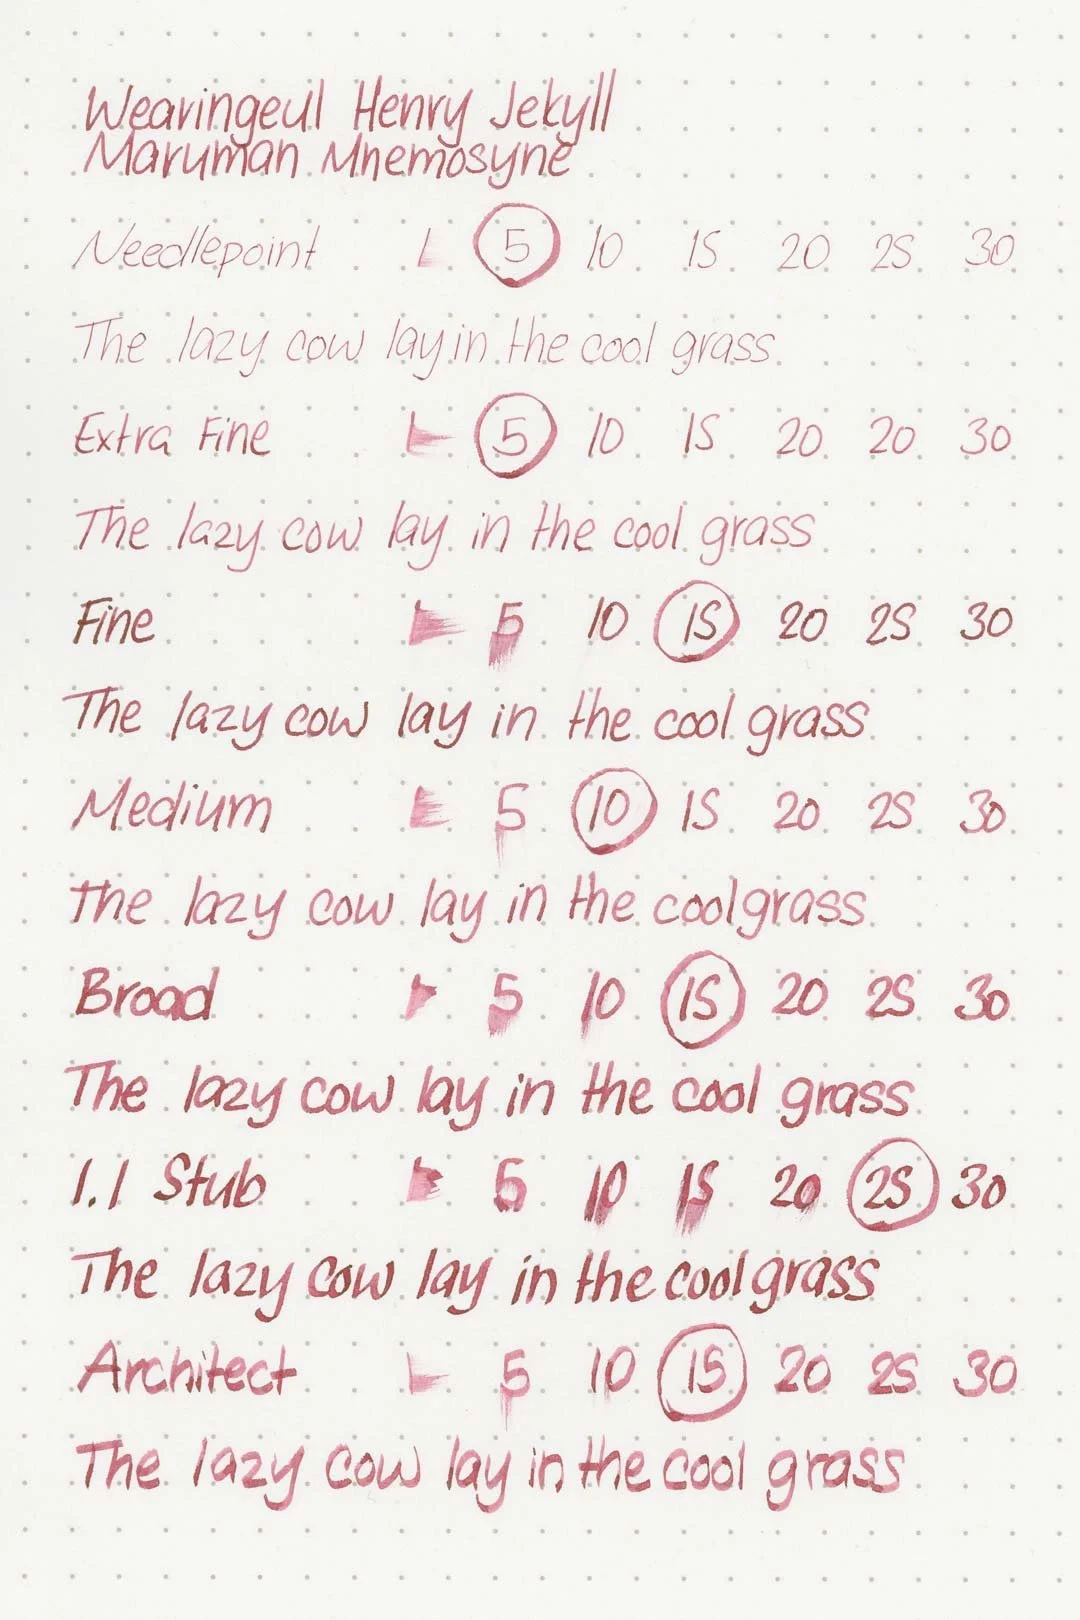 Wearingeul Henry Jekyll
Maruman Mnemosyne
Needlepoint 1 5 10 15 20 25 30
The lazy cow lay in the cool grass
Extra Fine 1 5 10 15 20 20 30
The lazy cow lay in the cool grass
Fine 1 5 10 15 20 25 30
The lazy cow lay in the cool grass
Medium 1 5 10 15 20 25 30
The lazy cow lay in the cool grass
Broad 1 5 10 15 20 25 30
The lazy cow lay in the cool grass
1.1 Stub 1 5 10 15 20 25 30
The lazy cow lay in the cool grass
Architect 1 5 10 15 20 25 30
The lazy cow lay in the cool grass